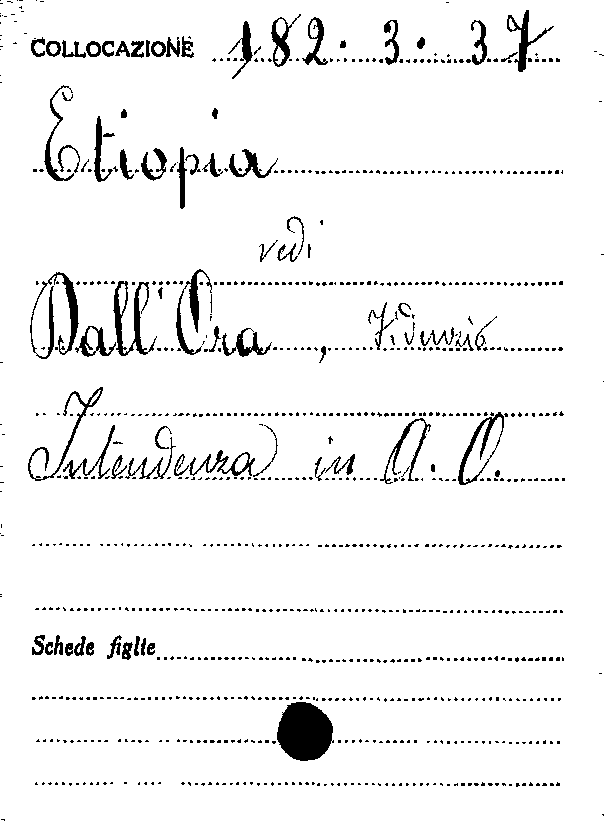 COLLOCAZIONE 182. 3. 37
Etiopia
vedi
Dall'Ora, Fidenzio
Intendenza in A. O.
Schede figlie